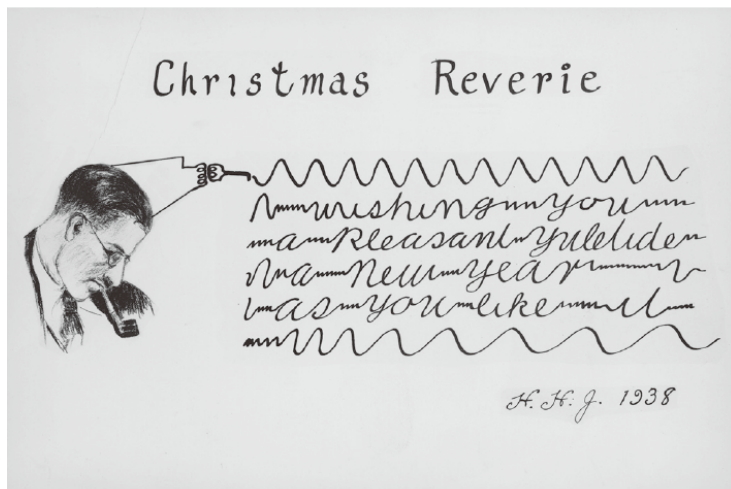 Christmas Reverie
wishing you
a Pleasant Yuletide
a New Year
as you like it
H. H. J. 1938